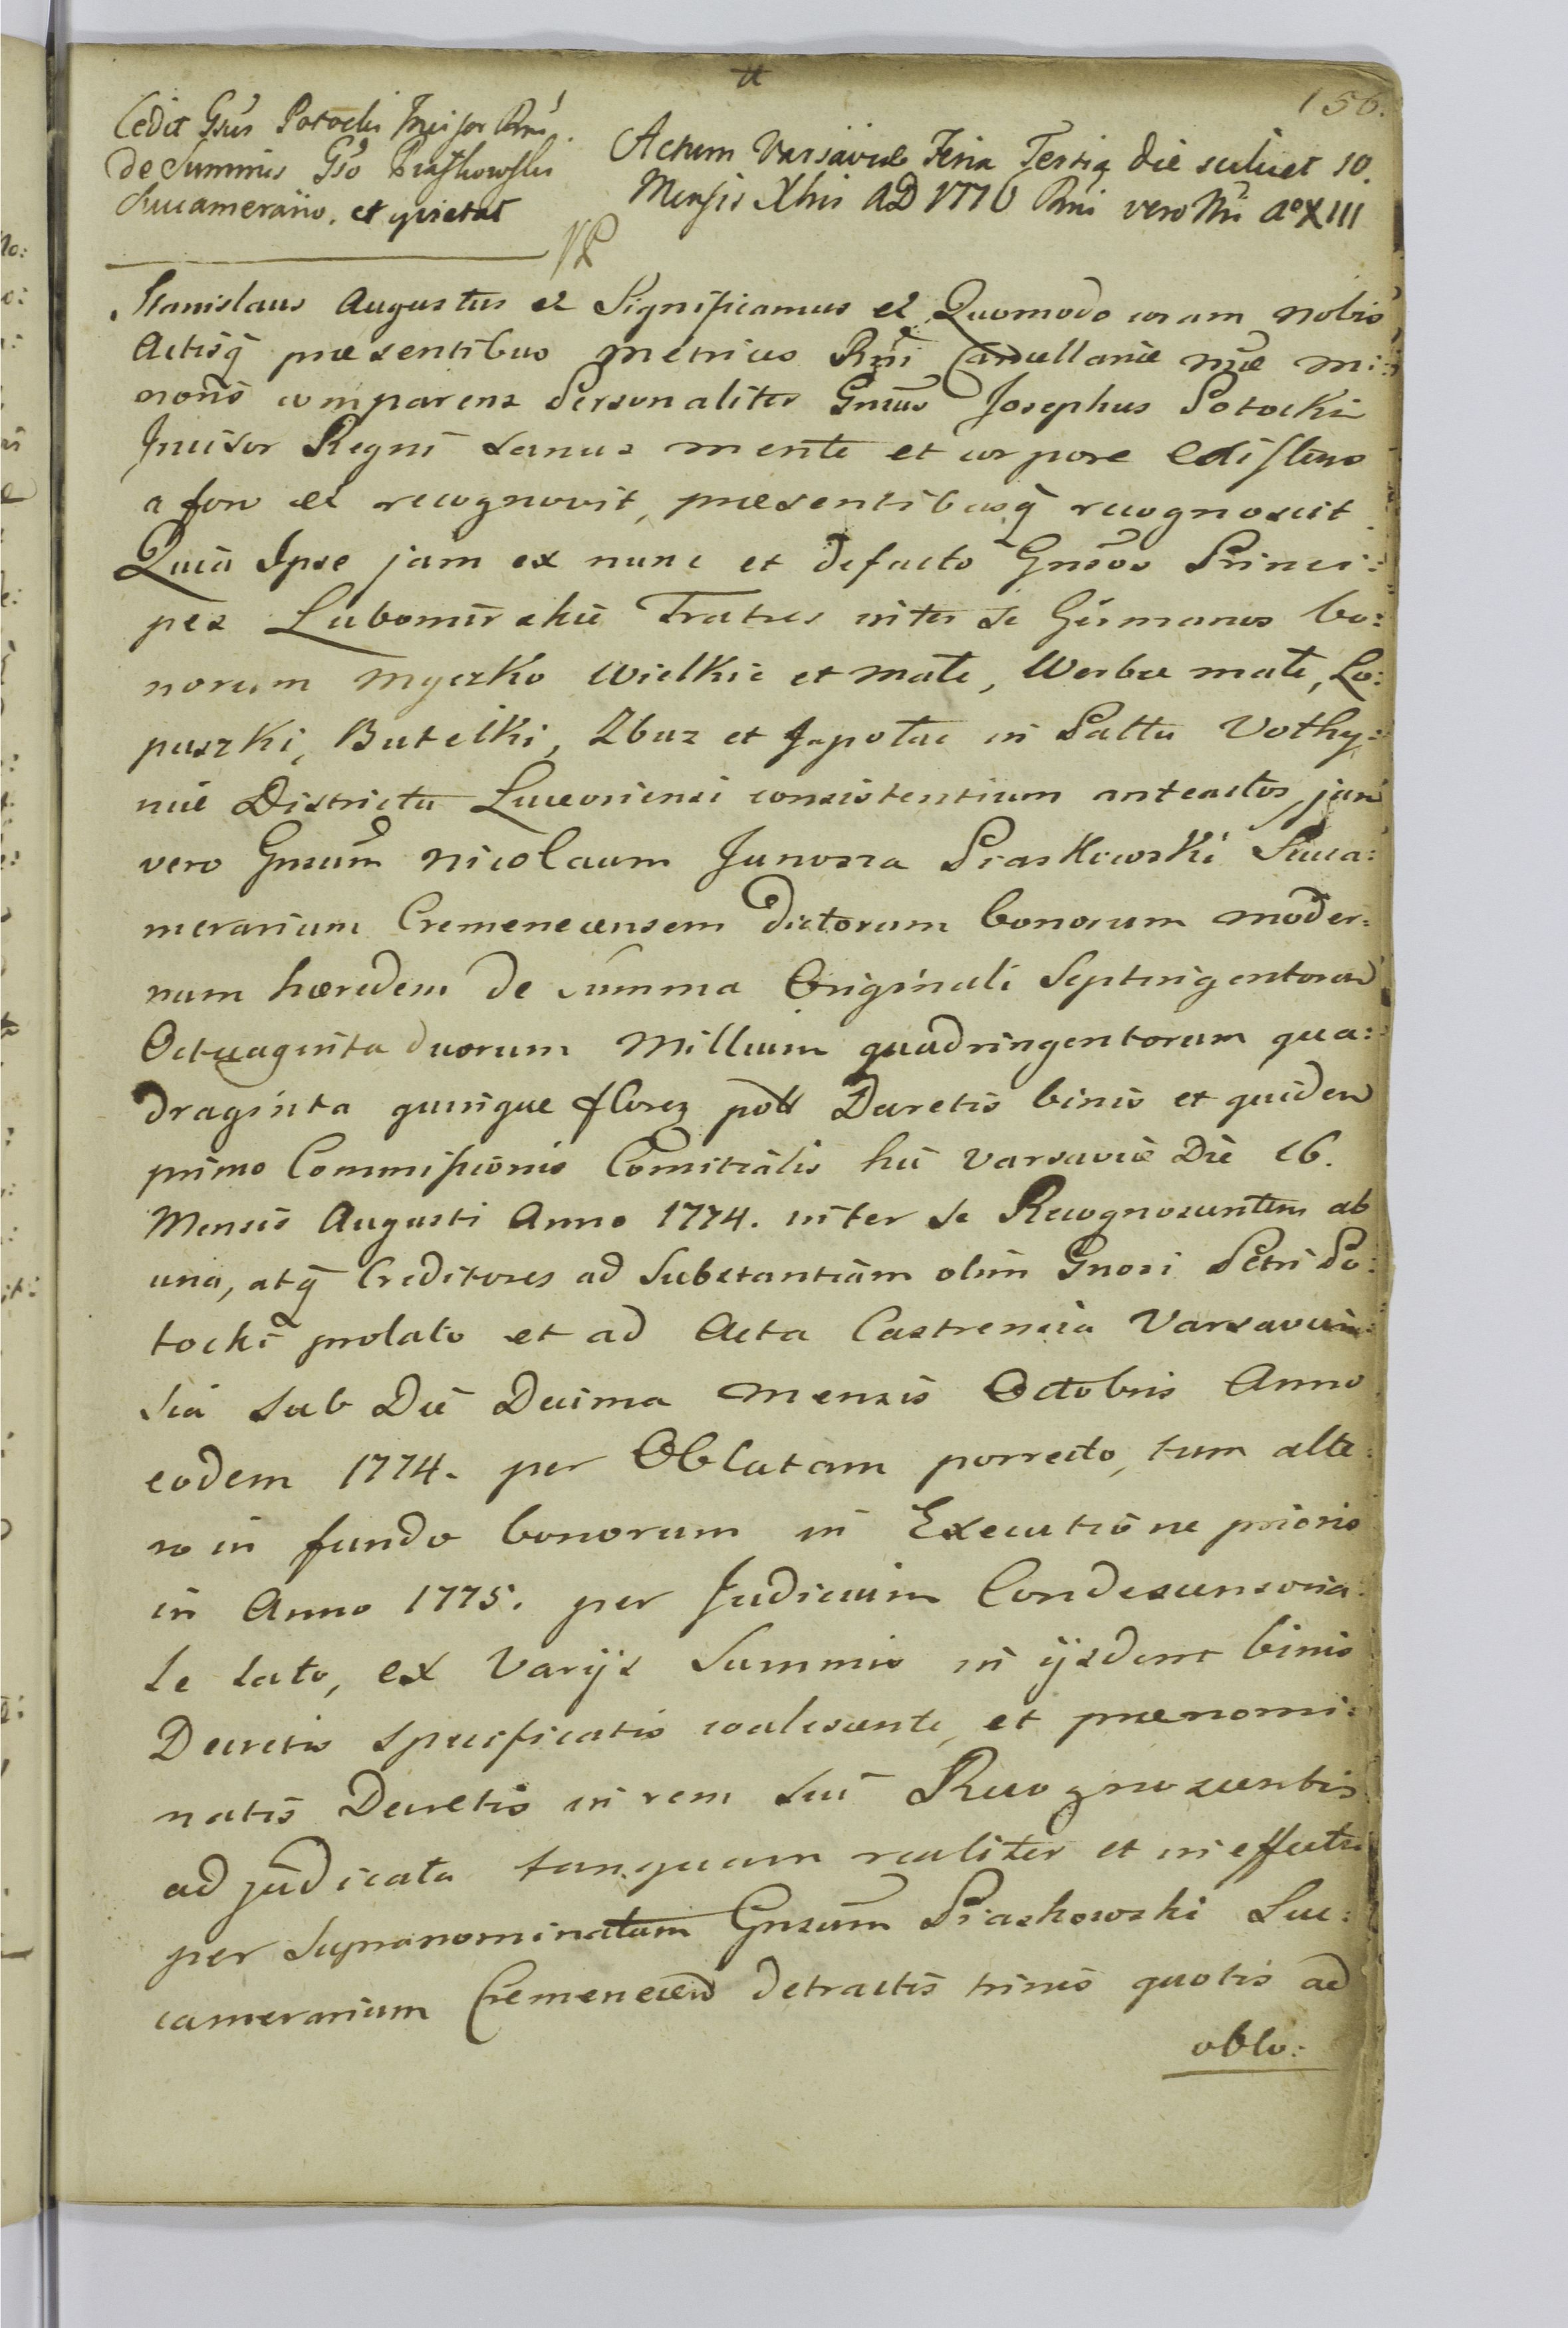 156.
Cedit Gsus Potocki Incisor Rni
de Summis Gso Piaskowski
Succamerario, et quietat
Actum Varsaviæ Feria Tertia die scilicet 10.
Mensis Xbris AD 1776 Rni vero Nri Aº XIII
Stanislaus Augustus et Significamus et Quomodo coram nobis
Actisq̃ præsentibus Metrices Rni Cancellariæ nræ mi:
noris comparens Personaliter Gnsus Josephus Potocki
Incisor Regni sanus mente et corpore existens
a foro et recognovit, præsentibusq̃ recognoscit
Quia Ipse jam ex nunc et defacto Gnsos Princi:
pes Lubomirskie Fratres inter se Germanos bo:
norum Myczko Wielkie et Małe, Werbce małe, Lo:
puszki, Butelki, Zbuz et Japołac in Pallu Volhy:
niæ Districtu Luceoriensi consistentium anteactos, jam
vero Gnsum Nicolaum Junosza Piaskowski Succa:
merarium Cremenecensem dictorum bonorum moder:
num hæredem de summa Originali Septingentorum
Octuaginta duorum Millium quadringentorum qua:
draginta quinque florez poll Decretis binis et quidem
primo Commissionis Comitialis hic Varsaviæ Die 16.
Mensis Augusti Anno 1774. inter se Recognoscentem ab
una, atq̃ Creditores ad Substantiam olim Gnosi Petri Po:
tocki prolato et ad Acta Castrensia Varsavien:
sia sub Die Decima Mensis Octobris Anno
eodem 1774. per Oblatam porrecto, tum alte:
ro in fundo bonorum in Executione prioris
in Anno 1775. per Judicium Condescensoria:
le lato, ex Varijs Summis in ijsdem binis
Decretis specificatis coalescente, et prænomi:
natis Decretis in rem sui Recognoscentis
adjudicata tanquam realiter et in effectu
per supranominatum Gnsum Piaskowski Suc:
camerarium Cremenecen detractis trinis quotis ad
oblo: